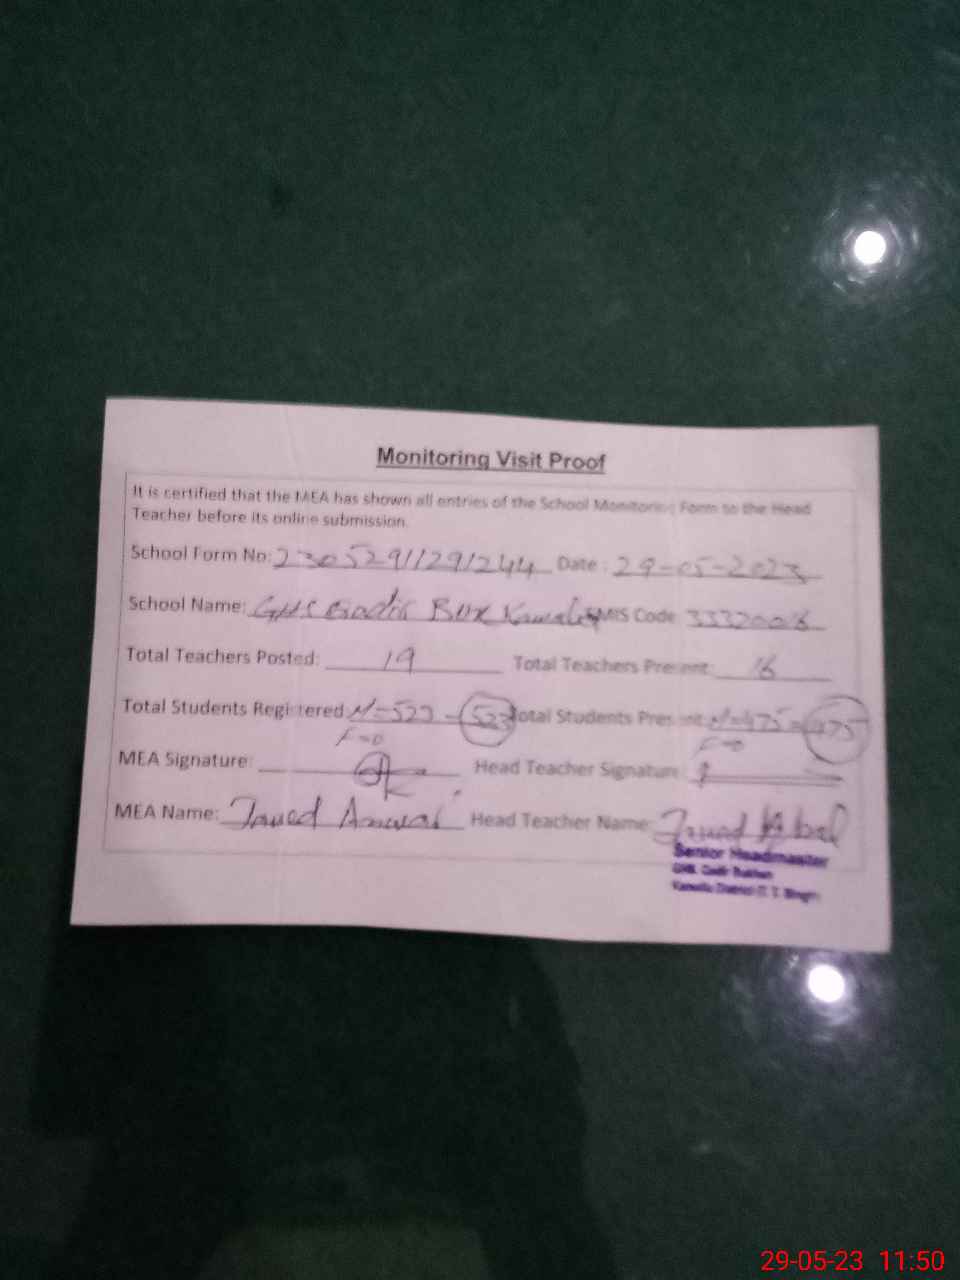 Monitoring Visit Proof
It is certified that the MEA has shown all entries of the School Monitoring Form to the Head
Teacher before its online submission.
School Form No: 23052911291244 Date: 29-05-2023
School Name: GHS Qadir Bux Kamalia EMIS Code 33320018
Total Teachers Posted: 19 Total Teachers Present: 16
Total Students Registered M=523 - 523 Total Students Present: M=475 = 475
F=0 F=0
MEA Signature: Head Teacher Signature:
MEA Name: Javed Anwar Head Teacher Name: Javed Iqbal
Senior Headmaster
GHS. Qadir Bakhsh
Kamalia District (T. T. Singh)
29-05-23 11:50